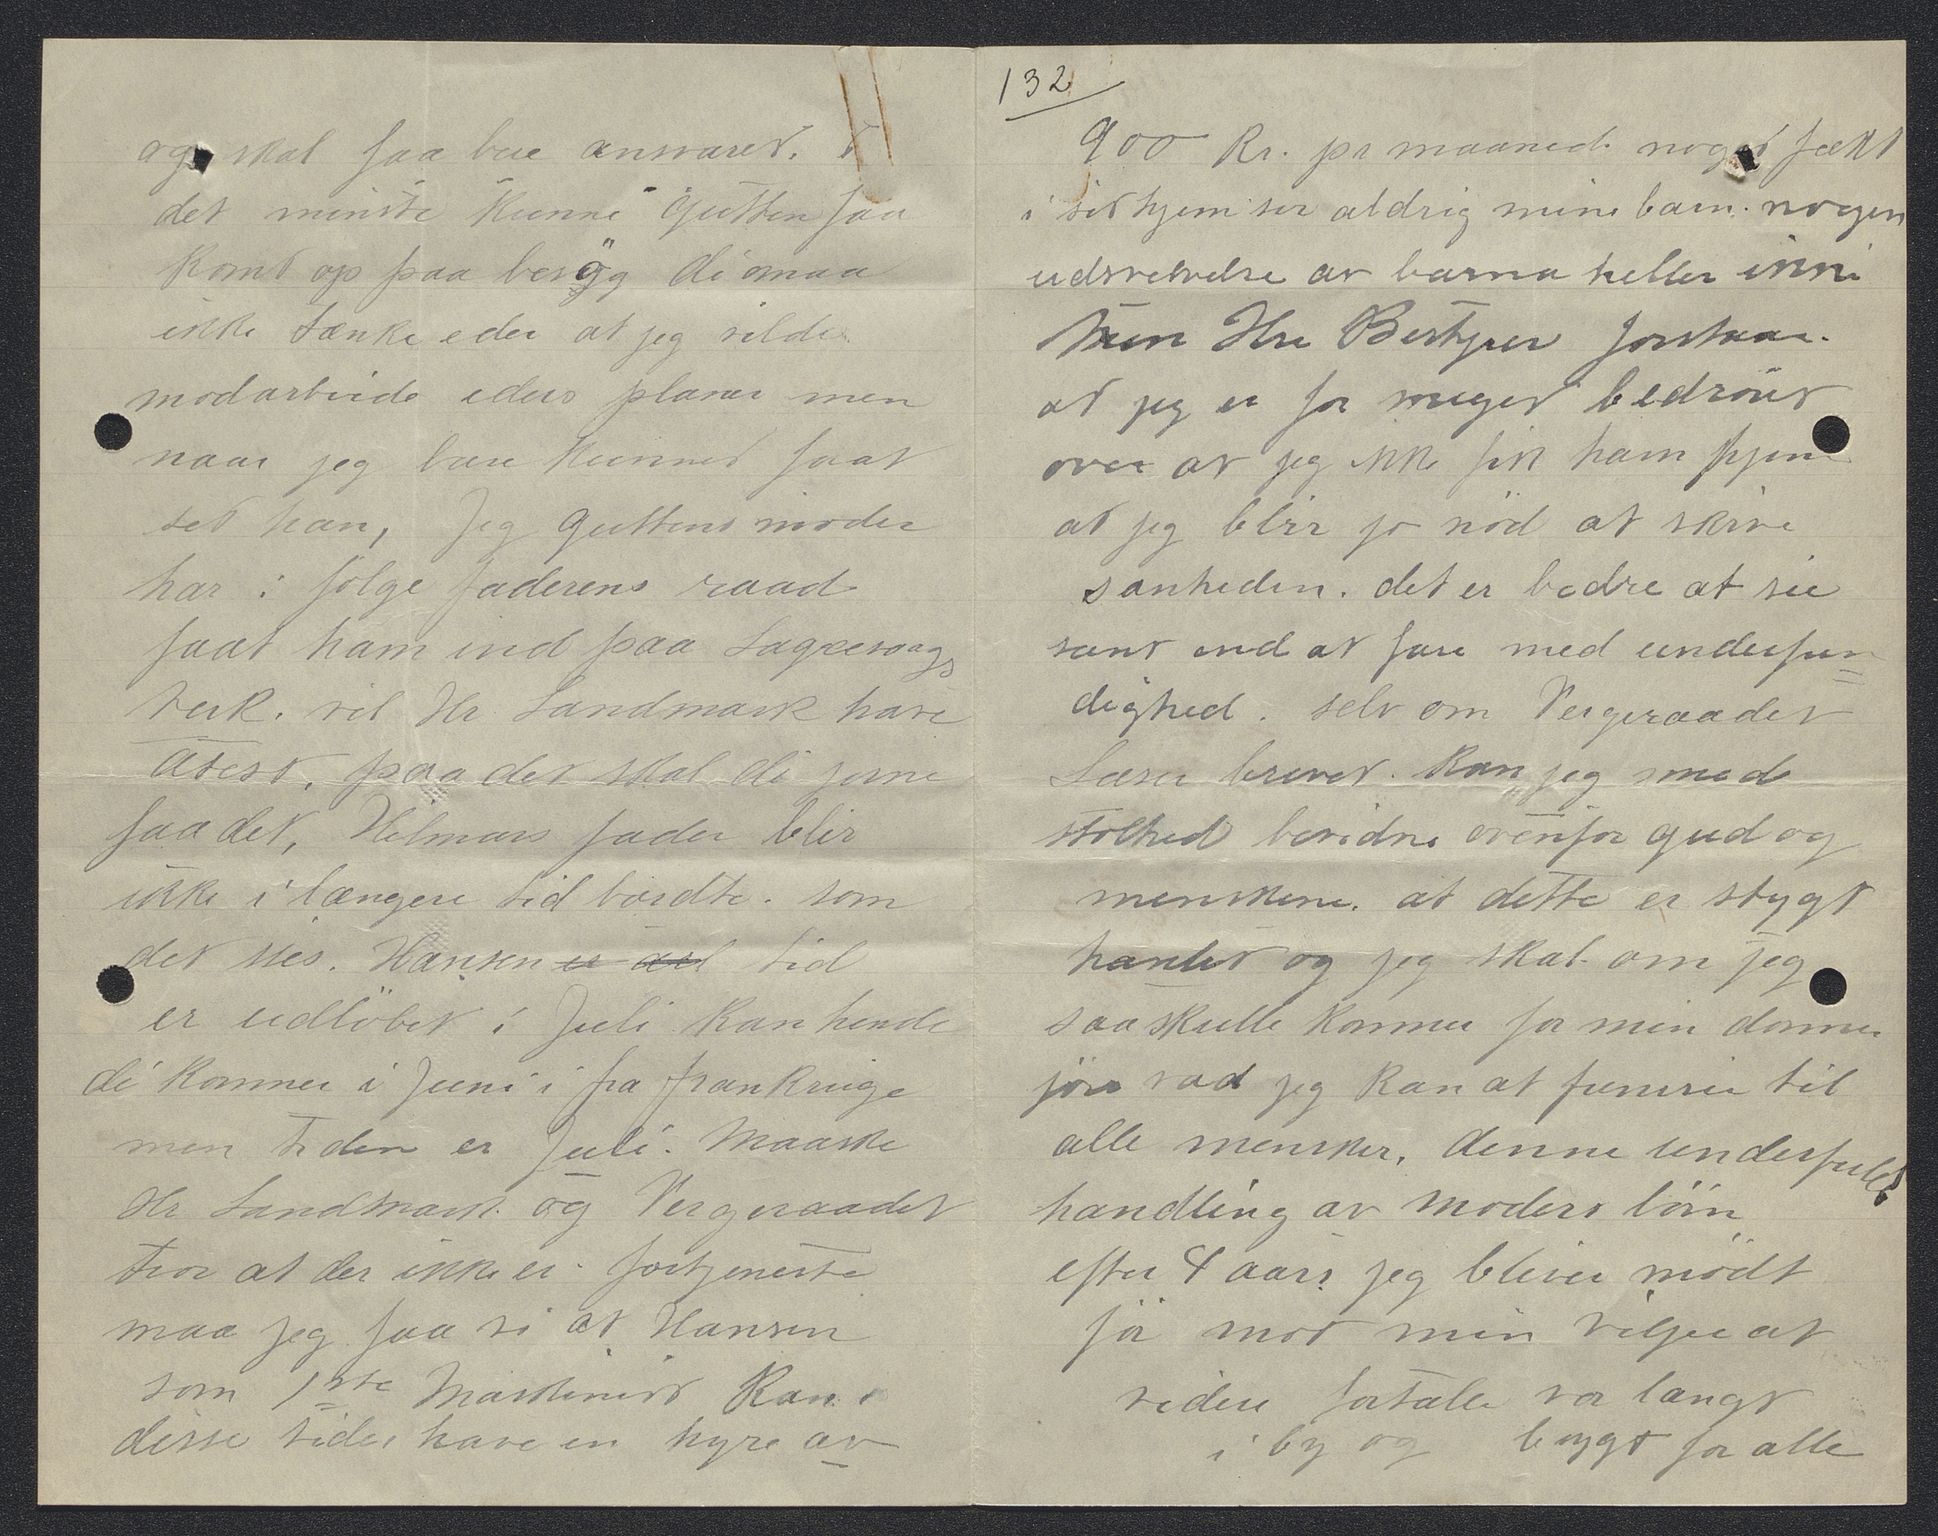 og skal faa bære ansvaret. I
det minste kunne Gutten faa
komt op paa besög di maa
ikke tænke eder at jeg vilde
modarbeide eders planer men
naar jeg bare kunned faat
set han, Jeg Guttens moder
har i følge faderens raad
faat ham ind paa Lagesvaag
verk. vil Hr Landmark have
atest, paa det skal di jerne
faa det, Hilmars fader blir
ikke i længere tid borte. som
det sies. Hansen er ard tid
er udløbet i Juli kan hende
di kommer i Juni i fra frankrige
men tiden er Juli. Maaske
Hr Landmark og Vergeraadet
tror at der ikke er fortjeneste
maa jeg faa si at Hansen
som 1ste Maskinist kan i
disse tider have en hyre av
132
900 Kr. pr maaned. noget fækt
i sit hjem ser aldrig mine barn. nogen
udsvevelse av barna heller inni
Men Hre Bestyrer forstaar.
at jeg er for meget bedrövet
over at jeg ikke fik ham hjem
at jeg blir jo nöd at skrive
sanheden. det er bedre at sie
sant end at fare med underfun=
dighed. selv om Vergeraadet
Læser brevet. kan jeg med
stolthed bevidne ovenfor gud og
menskene. at dette er stygt
hanlet og jeg skal om jeg
saa skulle komme for min dommer
jöre vad jeg kan at funsie til
alle mensker, denne underfuld
handling av moders börn
efter 4 aars jeg bliver mödt
för mot min vilje at
videre fortale vor langt
i by og bygt for alle